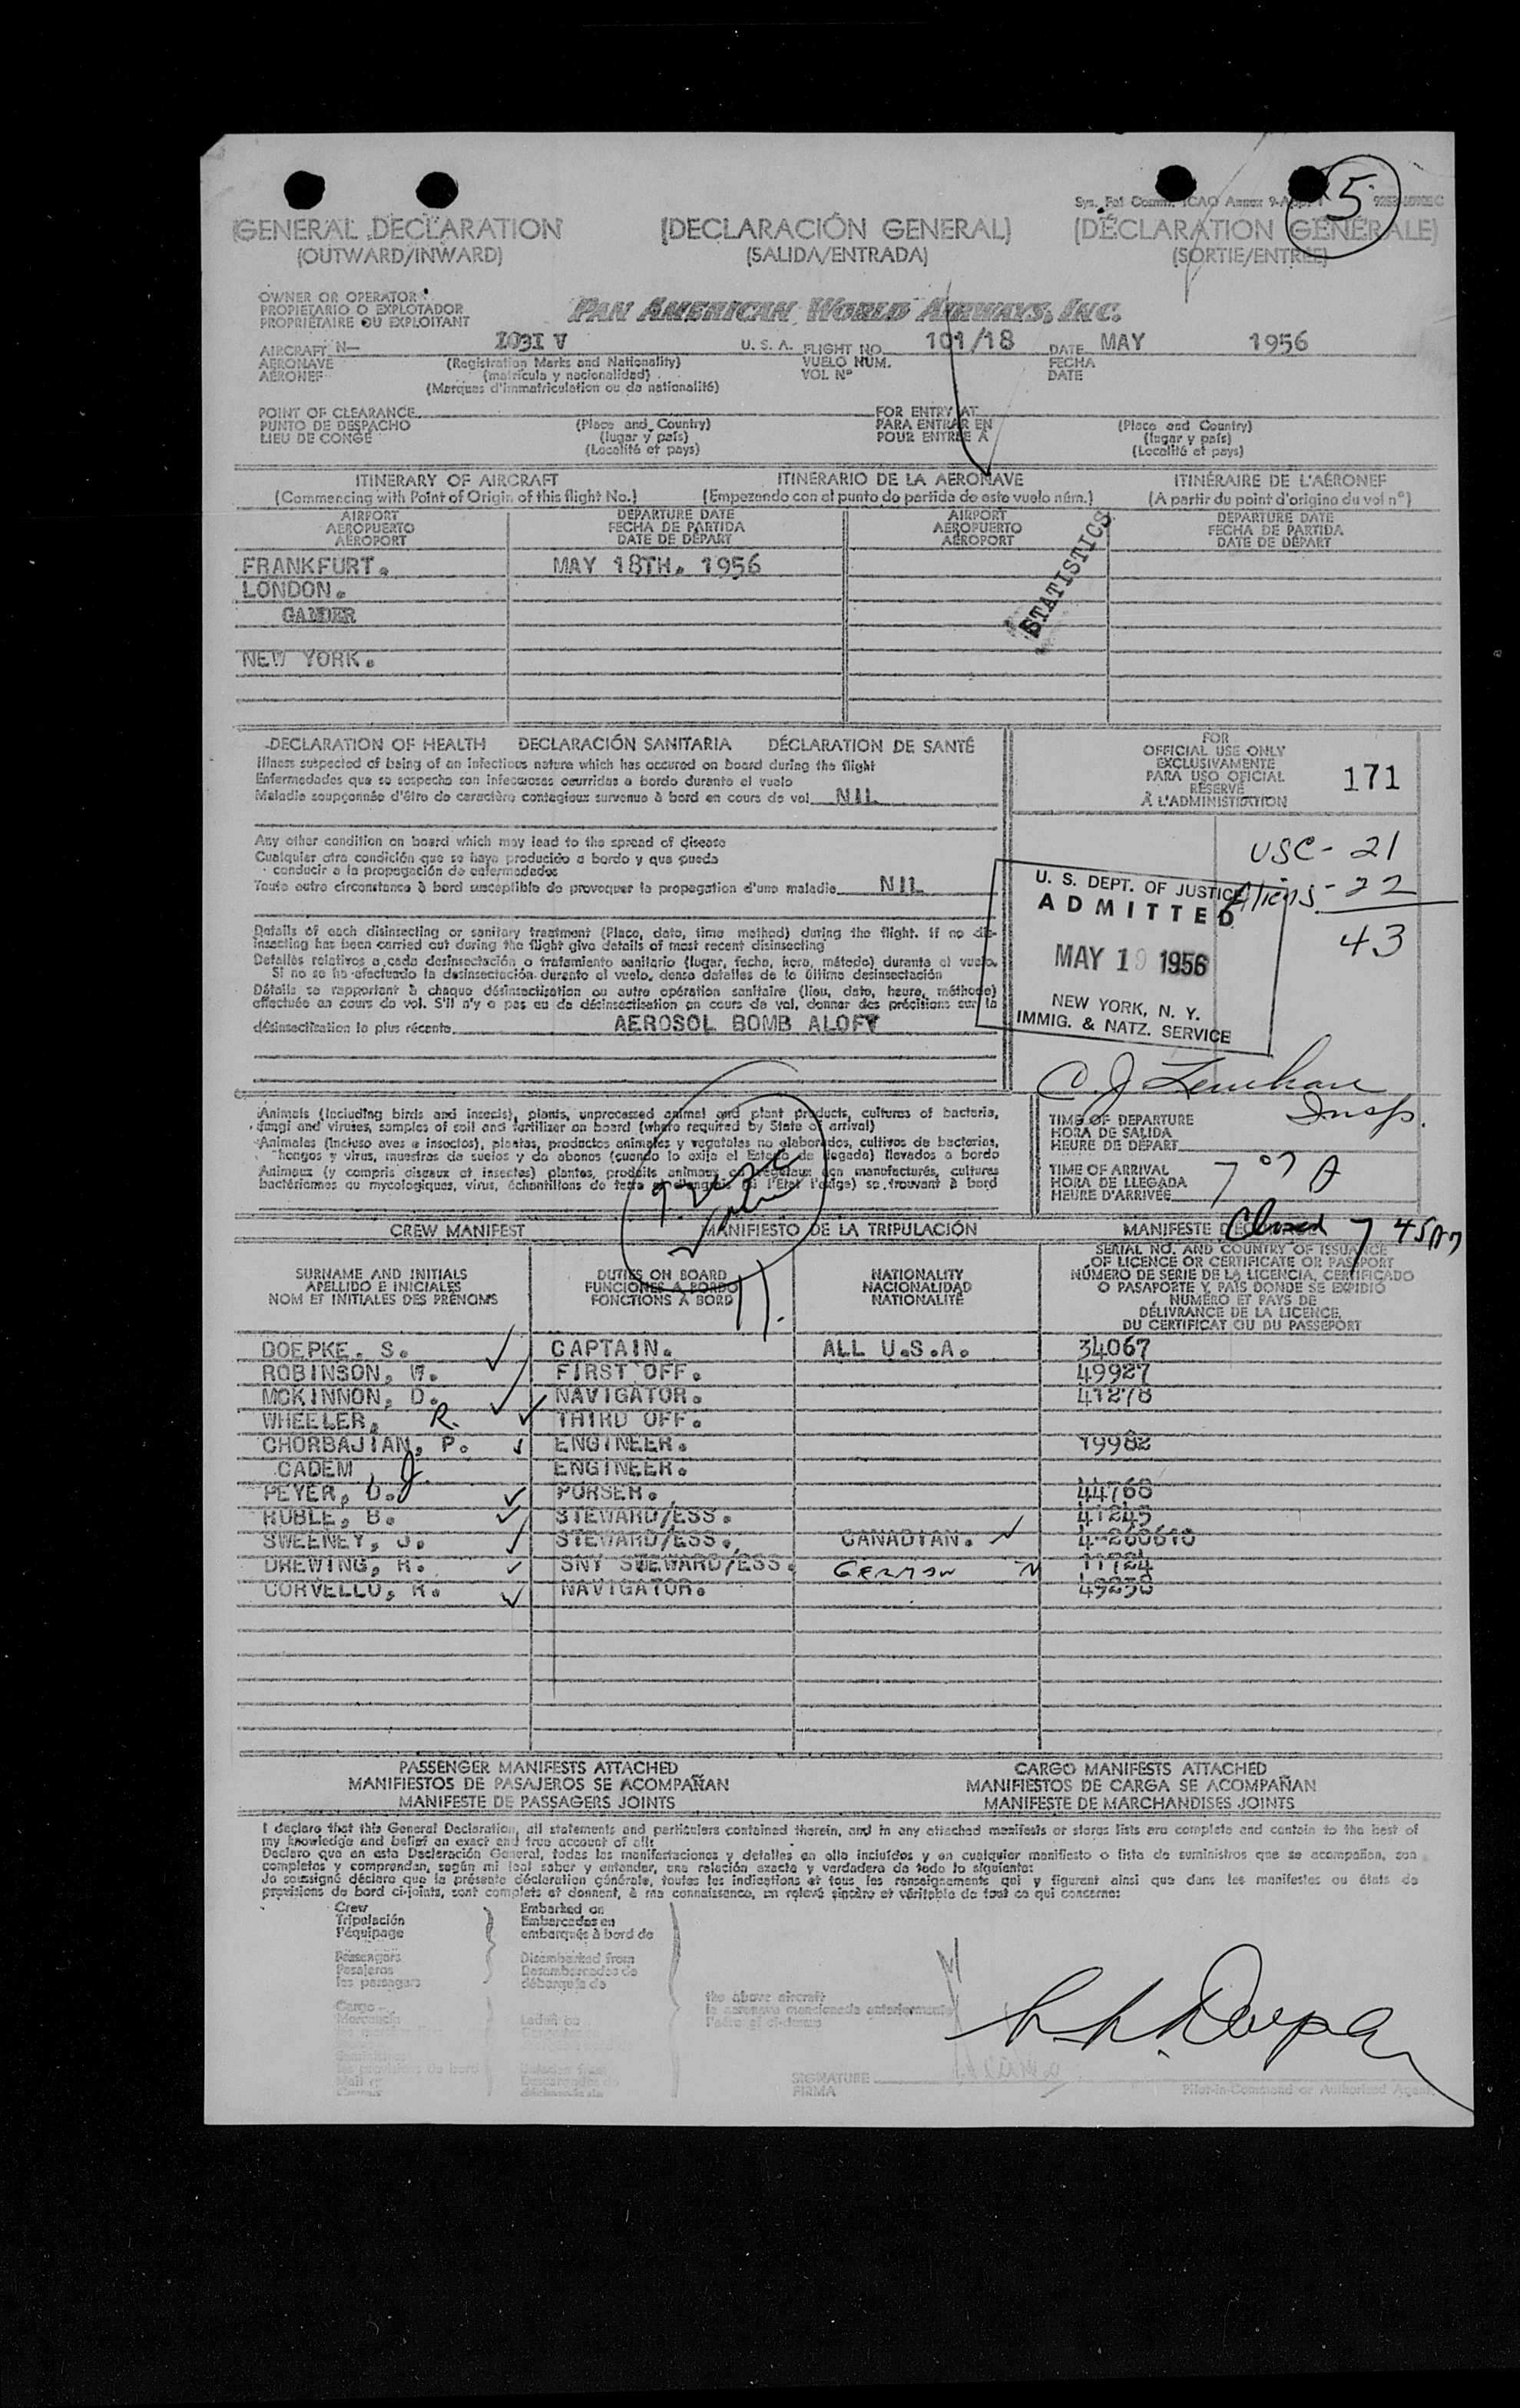 5
GENERAL DECLARATION
(OUTWARD/INWARD)
(DECLARACIÓN GENERAL)
(SALIDA/ENTRADA)
(DÉCLARATION GÉNÉRALE)
(SORTIE/ENTRÉE)
OWNER OR OPERATOR
PROPIETARIO O EXPLOTADOR
PROPRIÉTAIRE OU EXPLOITANT
PAN AMERICAN WORLD AIRWAYS, INC.
AIRCRAFT N— 1031 V U. S. A. FLIGHT NO. 101/18 DATE MAY 1956
AERONAVE (Registration Marks and Nationality) VUELO NUM. FECHA
AÉRONEF (matrícula y nacionalidad) VOL Nº DATE
(Marques d'immatriculation ou de nationalité)
POINT OF CLEARANCE FOR ENTRY AT
PUNTO DE DESPACHO (Place and Country) PARA ENTRAR EN (Place and Country)
LIEU DE CONGÉ (lugar y país) POUR ENTRÉE À (lugar y país)
(Localité et pays) (Localité et pays)
ITINERARY OF AIRCRAFT ITINERARIO DE LA AERONAVE ITINÉRAIRE DE L'AÉRONEF
(Commencing with Point of Origin of this flight No.) (Empezando con el punto de partida de este vuelo núm.) (A partir du point d'origine du vol nº)
AIRPORT DEPARTURE DATE AIRPORT DEPARTURE DATE
AEROPUERTO FECHA DE PARTIDA AEROPUERTO FECHA DE PARTIDA
AÉROPORT DATE DE DÉPART AÉROPORT DATE DE DÉPART
FRANKFURT. MAY 18TH. 1956
LONDON.
GANDER
STATISTICS
NEW YORK.
DECLARATION OF HEALTH DECLARACIÓN SANITARIA DÉCLARATION DE SANTÉ
Illness suspected of being of an infectious nature which has occured on board during the flight
Enfermedades que se sospecha son infecciosas ocurridas a bordo durante el vuelo
Maladie soupçonnée d'être de caractère contagieux survenue à bord en cours de vol NIL
Any other condition on board which may lead to the spread of disease
Cualquier otra condición que se haya producido a bordo y que pueda
conducir a la propagación de enfermedades
Toute autre circonstance à bord susceptible de provoquer la propagation d'une maladie NIL
Details of each disinsecting or sanitary treatment (Place, date, time method) during the flight. If no dis-
insecting has been carried out during the flight give details of most recent disinsecting
Detalles relativos a cada desinsectación o tratamiento sanitario (lugar, fecha, hora, método) durante el vuelo.
Si no se ha efectuado la desinsectación durante el vuelo, dense detalles de la última desinsectación
Détails se rapportant à chaque désinsectisation ou autre opération sanitaire (lieu, date, heure, méthode)
effectuée en cours de vol. S'il n'y a pas eu de désinsectisation en cours de vol, donner des précisions sur la
désinsectisation la plus récente AEROSOL BOMB ALOFT
FOR
OFFICIAL USE ONLY
EXCLUSIVAMENTE
PARA USO OFICIAL
RÉSERVÉ
À L'ADMINISTRATION
171
USC - 21
Aliens - 22
43
U. S. DEPT. OF JUSTICE
ADMITTED
MAY 19 1956
NEW YORK, N. Y.
IMMIG. & NATZ. SERVICE
C. J. Lenehan
Insp.
Animals (including birds and insects), plants, unprocessed animal and plant products, cultures of bacteria,
fungi and viruses, samples of soil and fertilizer on board (where required by State of arrival)
Animales (incluso aves e insectos), plantas, productos animales y vegetales no elaborados, cultivos de bacterias,
hongos y virus, muestras de suelos y de abonos (cuando lo exija el Estado de llegada) llevados a bordo
Animaux (y compris oiseaux et insectes) plantes, produits animaux ou végétaux non manufacturés, cultures
bactériennes ou mycologiques, virus, échantillons de terre et d'engrais (si l'Etat l'exige) se trouvant à bord
TIME OF DEPARTURE
HORA DE SALIDA
HEURE DE DÉPART
TIME OF ARRIVAL
HORA DE LLEGADA 7 07 A
HEURE D'ARRIVÉE
CREW MANIFEST MANIFIESTO DE LA TRIPULACIÓN MANIFESTE Closed 7 45 Am
SURNAME AND INITIALS
APELLIDO E INICIALES
NOM ET INITIALES DES PRÉNOMS
DUTIES ON BOARD
FUNCIONES A BORDO
FONCTIONS À BORD
11.
NATIONALITY
NACIONALIDAD
NATIONALITÉ
SERIAL NO. AND COUNTRY OF ISSUANCE
OF LICENCE OR CERTIFICATE OR PASSPORT
NÚMERO DE SERIE DE LA LICENCIA, CERTIFICADO
O PASAPORTE Y PAÍS DONDE SE EXPIDIÓ
NUMÉRO ET PAYS DE
DÉLIVRANCE DE LA LICENCE,
DU CERTIFICAT OU DU PASSEPORT
DOEPKE. S. CAPTAIN. ALL U.S.A. 34067
ROBINSON, W. FIRST OFF. 49927
MCKINNON, D. NAVIGATOR. 41278
WHEELER, R. THIRD OFF.
CHORBAJIAN, P. ENGINEER. 19982
CADEM, J. ENGINEER.
PEYER, D. PURSER. 44768
RUBLE, B. STEWARD/ESS. 41245
SWEENEY, J. STEWARD/ESS. CANADIAN. 4-260610
DREWING, R. SNY STEWARD/ESS. GERMAN 11724
CORVELLO, R. NAVIGATOR. 49238
PASSENGER MANIFESTS ATTACHED
MANIFIESTOS DE PASAJEROS SE ACOMPAÑAN
MANIFESTE DE PASSAGERS JOINTS
CARGO MANIFESTS ATTACHED
MANIFIESTOS DE CARGA SE ACOMPAÑAN
MANIFESTE DE MARCHANDISES JOINTS
I declare that this General Declaration, all statements and particulars contained therein, and in any attached manifests or stores lists are complete and contain to the best of
my knowledge and belief an exact and true account of all:
Declaro que en esta Declaración General, todas las manifestaciones y detalles en ella incluídos y en cualquier manifiesto o lista de suministros que se acompañan, son
completos y comprenden, según mi leal saber y entender, una relación exacta y verdadera de todo lo siguiente:
Je soussigné déclare que la présente déclaration générale, toutes les indications et tous les renseignements qui y figurent ainsi que dans les manifestes ou états de
provisions de bord ci-joints, sont complets et donnent, à ma connaissance, un relevé sincère et véritable de tout ce qui concerne:
Crew Embarked on
Tripulación Embarcados en
l'équipage embarqués à bord de
Passengers Disembarked from
Pasajeros Desembarcados de
les passagers débarqués de
the above aircraft
la aeronave mencionada anteriormente
Cargo Laden on
SIGNATURE
FIRMA
Pilot-in-Command or Authorized Agent